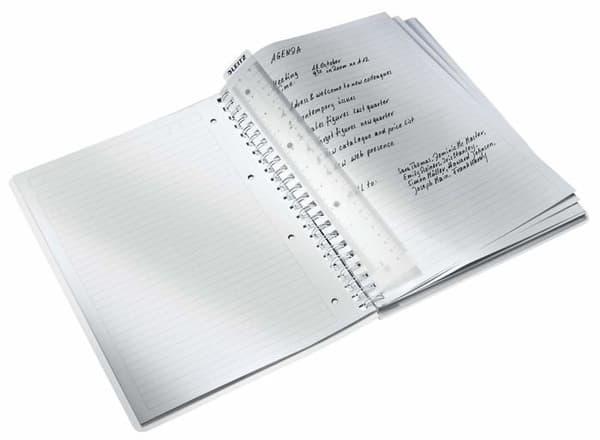 LEITZ
AGENDA
Meeting 18. October
Time: 9 30 in Room no 4.12
address & welcome to new colleagues
contemporary issues
sales figures last quarter
target figures new quarter
new catalogue and price list
new web presence
to:
Sara Thomas, Dominic Mc Master,
Emily
Simon Müller, Howard Johnson,
Joseph Main, Frank Hardy